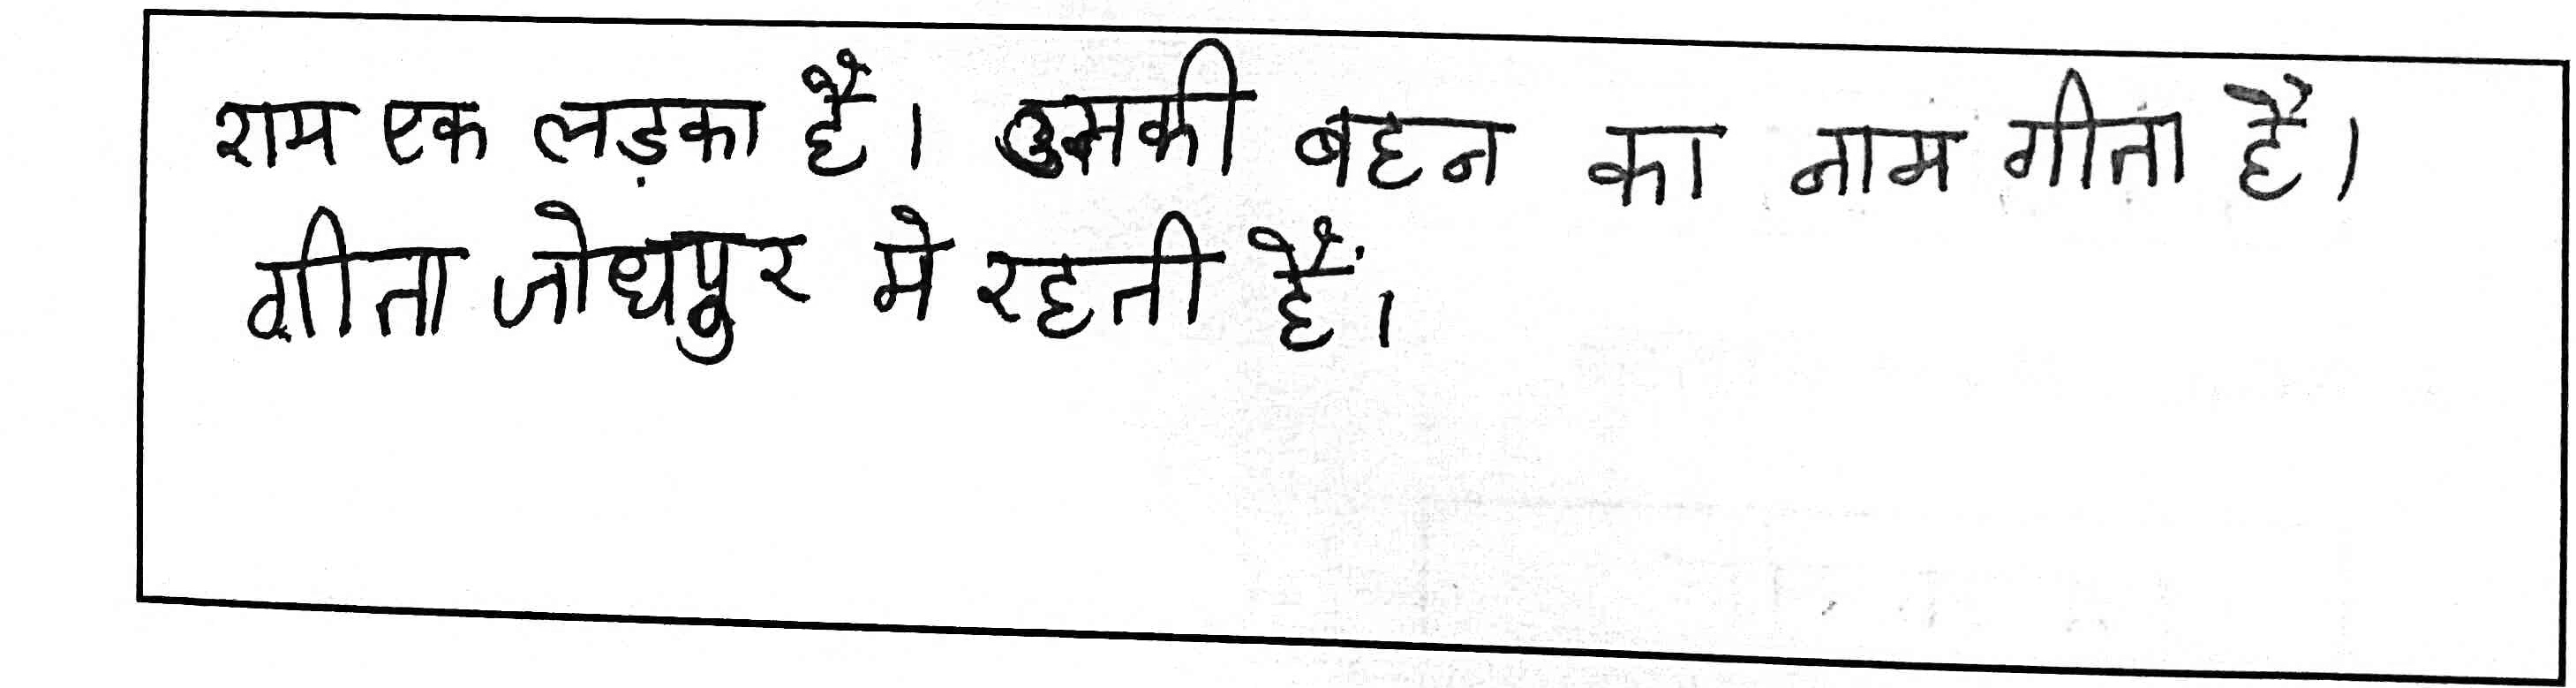 राम एक लड़का है। उसकी बहन का नाम गीता है।
गीता जोधपुर मे रहती हैं।